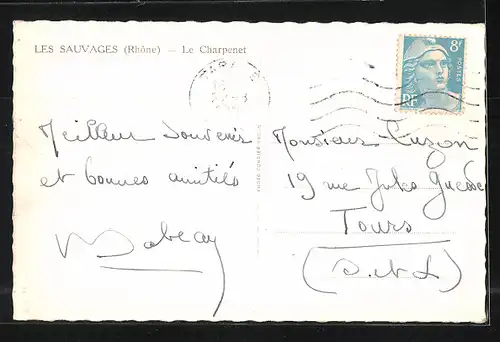 LES SAUVAGES (Rhône) — Le Charpenet
8F
POSTES
RF
Meilleur souvenir
et bonnes amitiés
Monsieur Luzon
19 rue Jules Guesde
Tours
(I. et L)